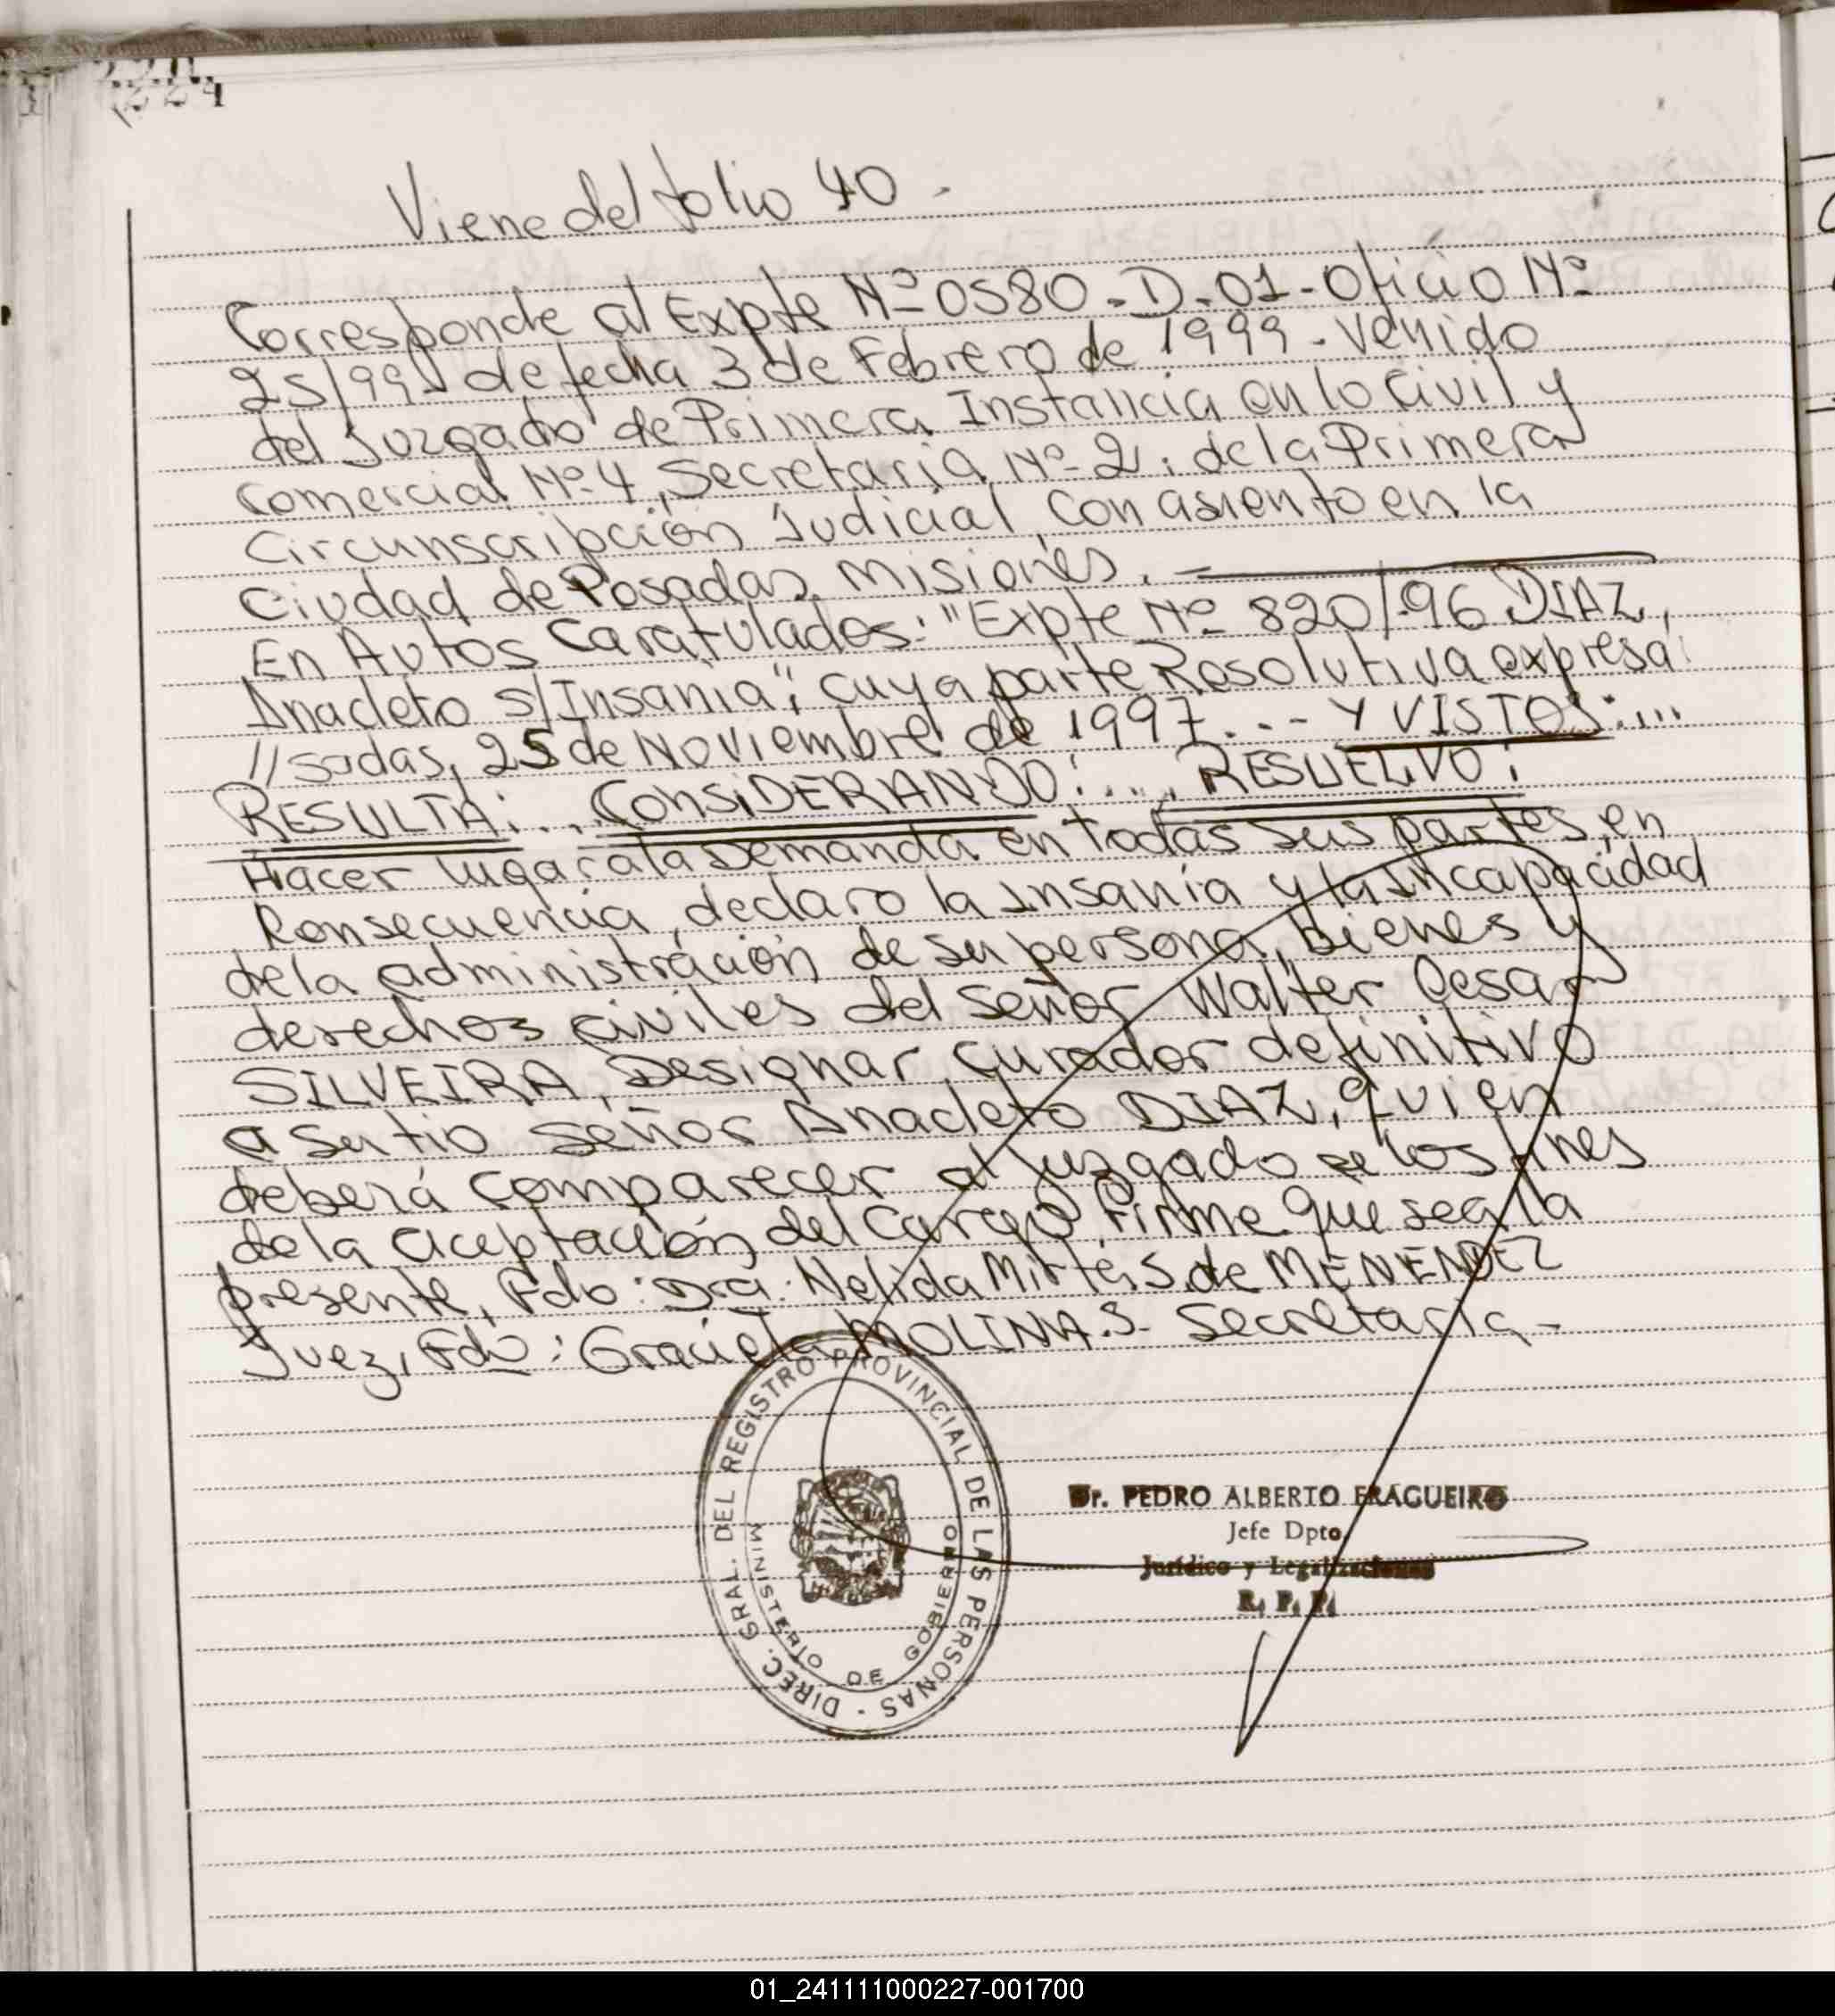 224
Viene del folio 40 -
Corresponde al Expte Nº 0580 - D - 01 - Oficio Nº
25/99 - de fecha 3 de Febrero de 1999 - Venido
del Juzgado de Primera Instancia en lo Civil y
Comercial Nº 4, Secretaria Nº 2, de la Primera
Circunscripción Judicial con asiento en la
Ciudad de Posadas, Misiones. -
En Autos Caratulados: "Expte Nº 820/96 DIAZ,
Anacleto s/Insania", cuya parte Resolutiva expresa:
//sadas, 25 de Noviembre de 1997... - Y VISTOS:...
RESULTA:... CONSIDERANDO:.... RESUELVO:
Hacer lugar a la Demanda en todas sus partes, en
Consecuencia, declaro la Insania y la Incapacidad
de la administración de su persona, bienes y
derechos civiles del señor Walter Cesar
SILVEIRA, Designar curador definitivo
a su tio señor Anacleto DIAZ, quien
deberá comparecer al Juzgado a los fines
de la aceptación del cargo, Firme que sea la
presente, Fdo: Dra. Nelida Mirta S. de MENENDEZ
Juez, Fdo: Graciela MOLINA.S- Secretaria -
DIREC. GRAL. DEL REGISTRO PROVINCIAL DE LAS PERSONAS
MINISTERIO DE GOBIERNO
Dr. PEDRO ALBERTO FRAGUEIRO
Jefe Dpto.
Jurídico y Legalizaciones
R. P. P.
01_241111000227-001700